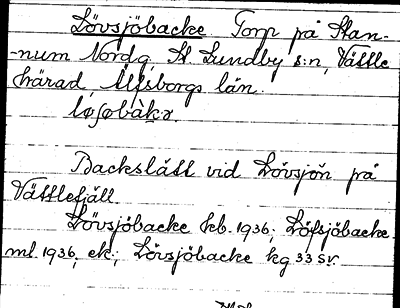 Lövsjöbacke. Torp på Stan-
-num Nordg. St. Lundby s:n, Vättle
härad, Älfsborgs län.
løʃøbàkə.
Backslätt vid Lövsjön på
Vättlefjäll.
Lövsjöbacke kb. 1936; Löfsjöbacke
ml. 1936, ek.; Lövsjöbacke kg 33 SV.